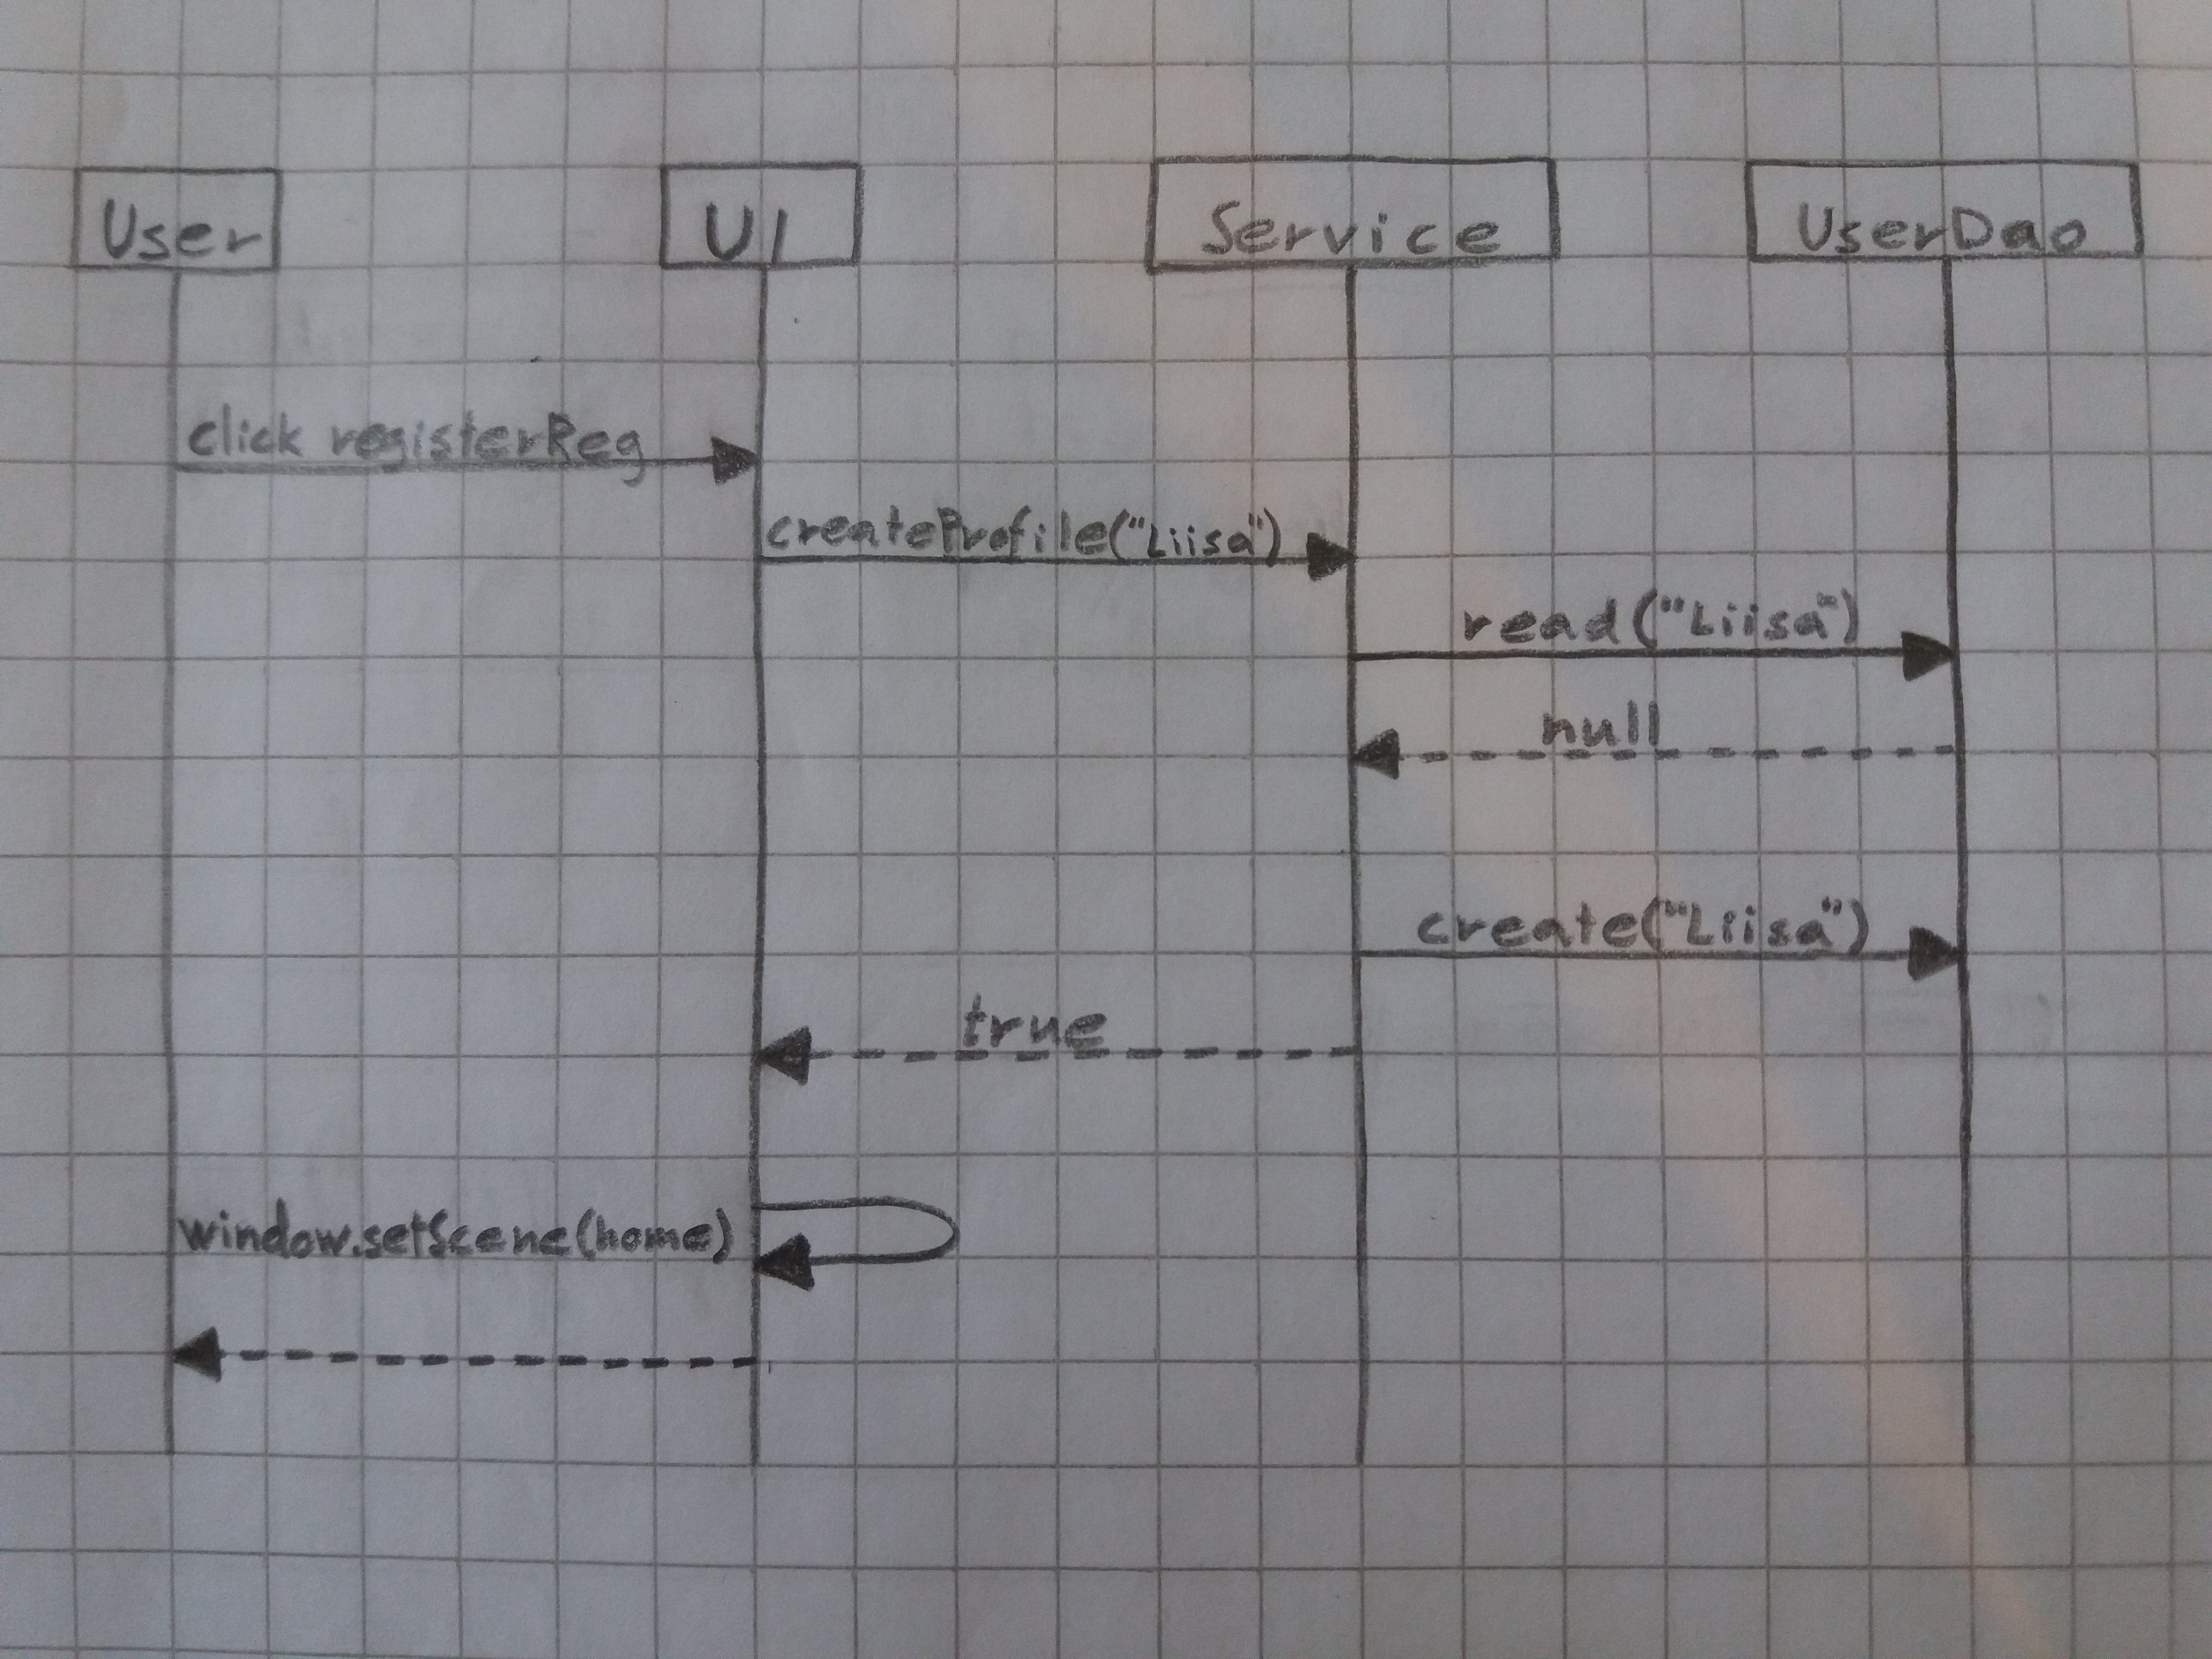 User
UI
Service
UserDao
click registerReg
createProfile("Liisa")
read("Liisa")
null
create("Liisa")
true
window.setScene(home)